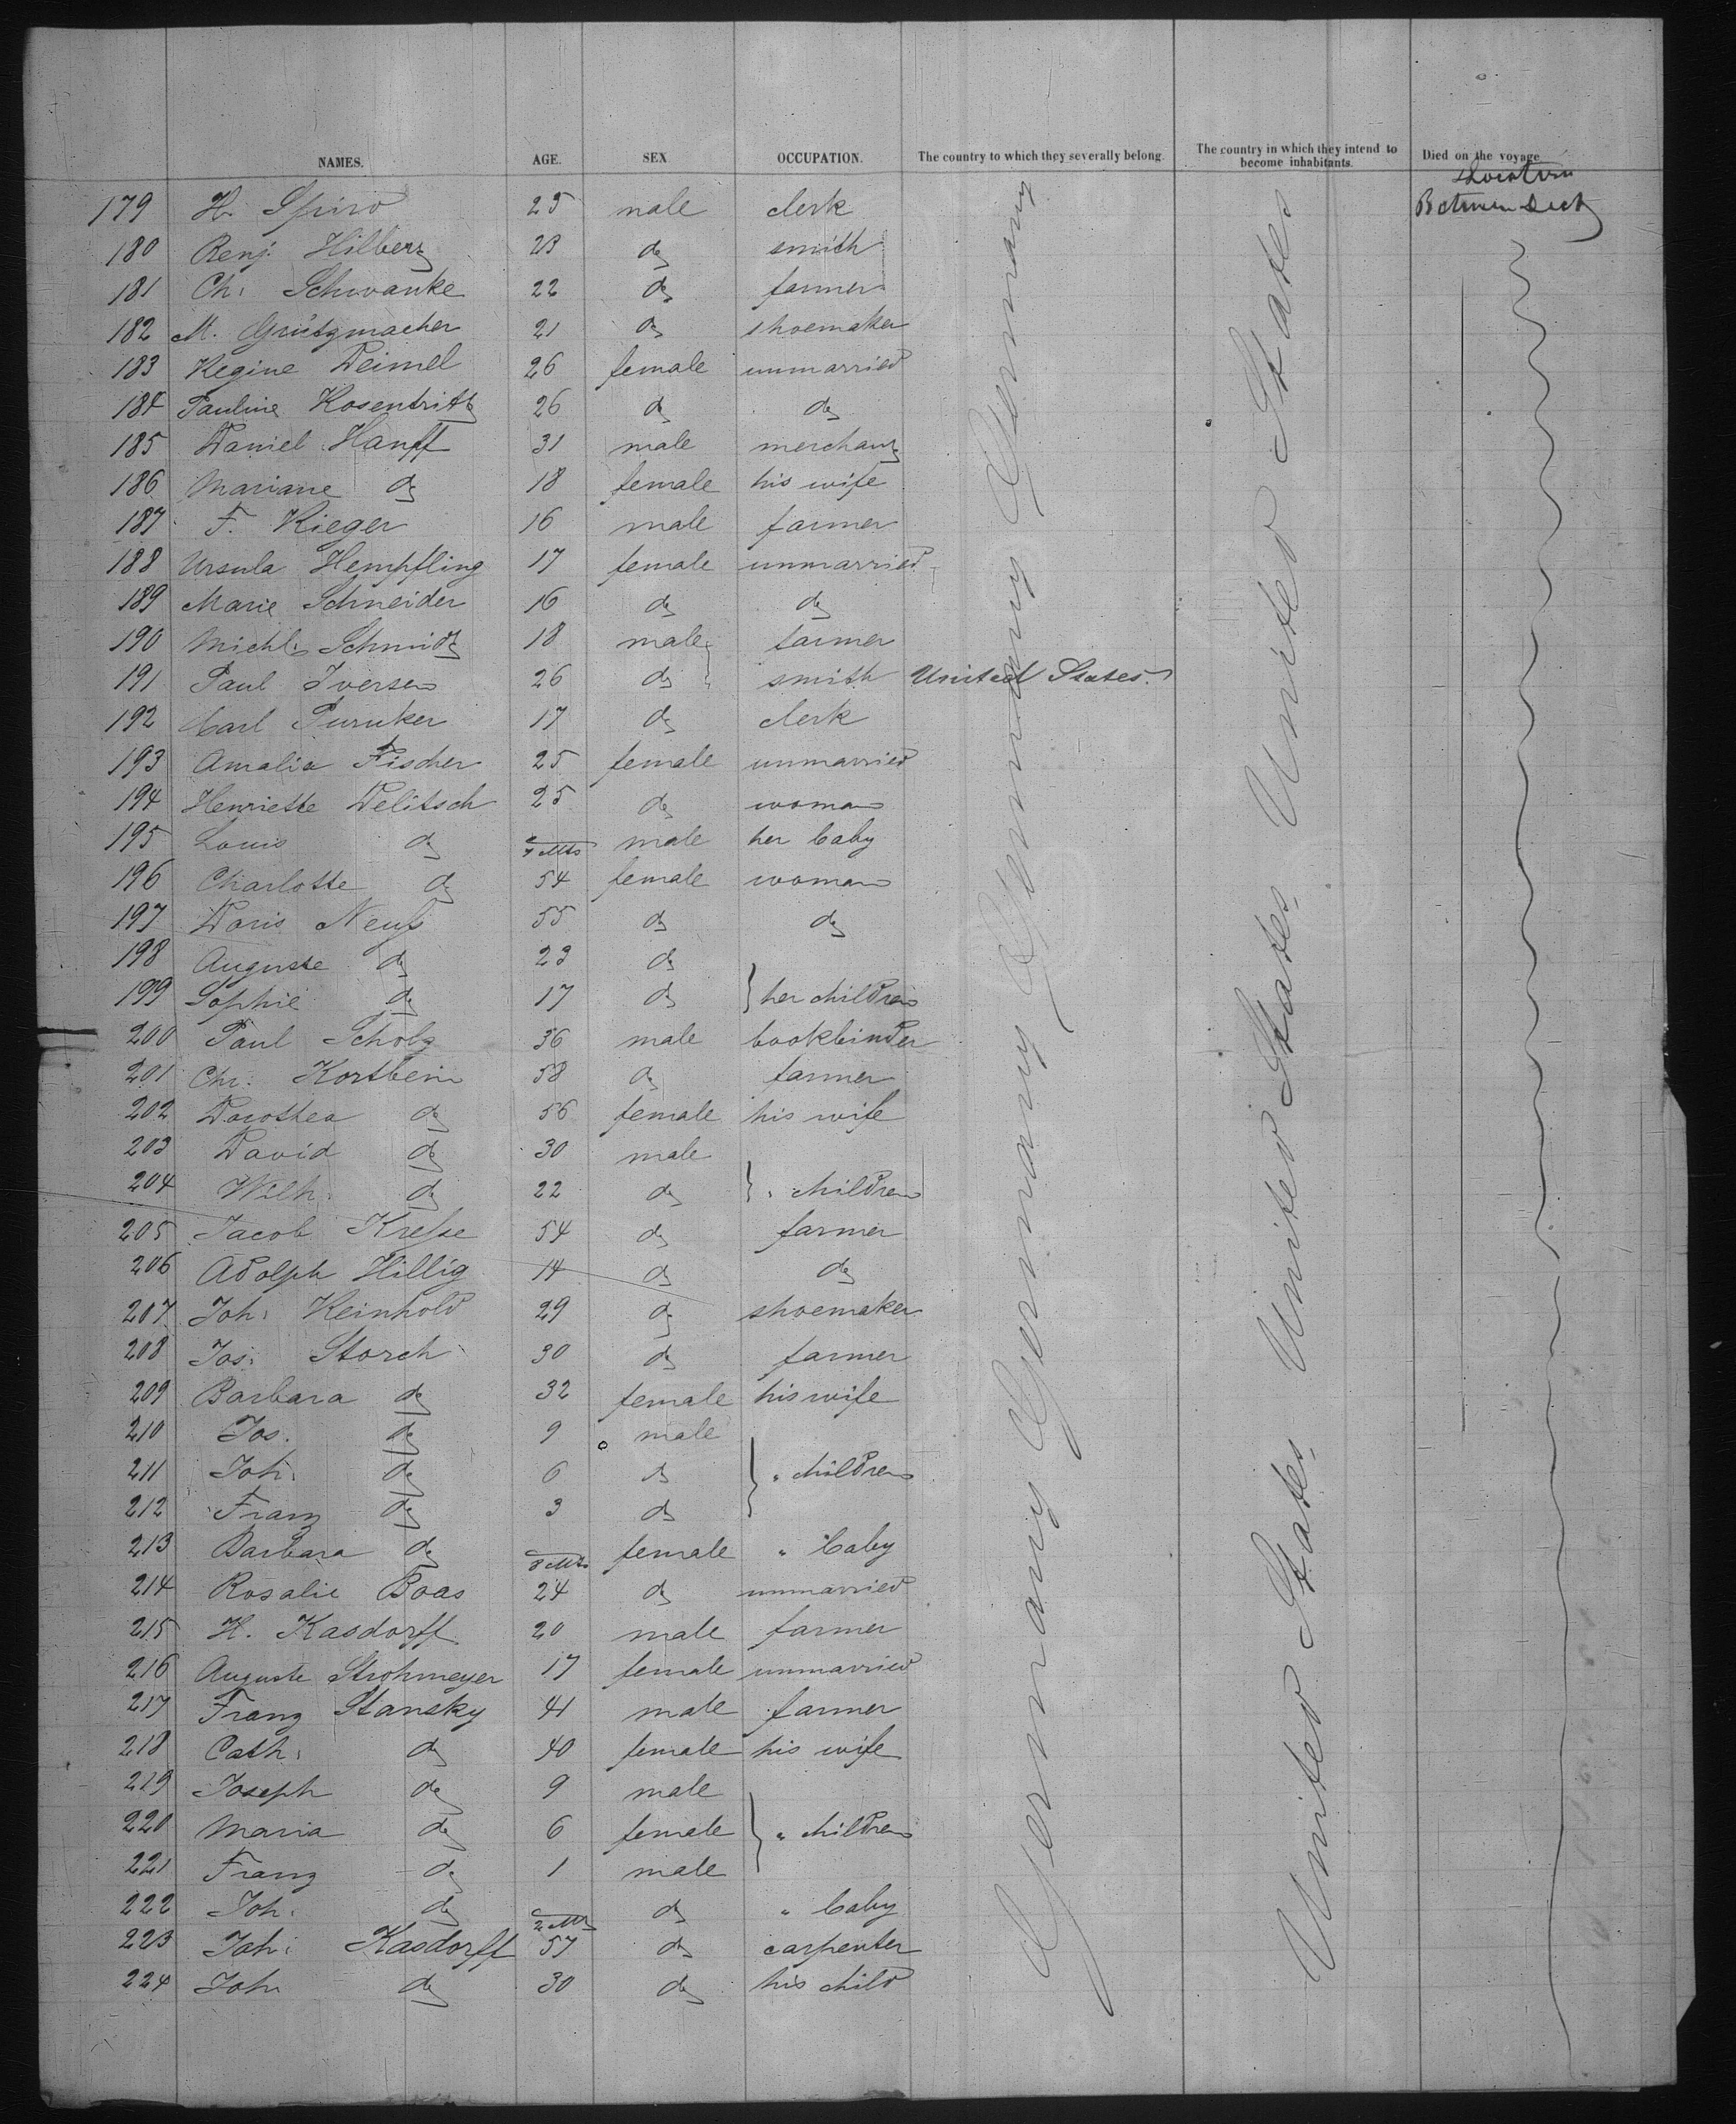 NAMES. AGE. SEX OCCUPATION. The country to which they severally belong. The country in which they intend to become inhabitants. Died on the voyage
Location
179 H. Spiro 25 male clerk Between Deck
180 Benj. Hilberz 23 do smith
181 Ch: Schwanke 22 do farmer
182 M. Grützmacher 21 do shoemaker
183 Regine Deimel 26 female unmarried
184 Pauline Rosentritt 26 do do
185 Daniel Hanff 31 male merchant
186 Mariane do 18 female his wife
187 F. Rieger 16 male farmer
188 Ursula Hempfling 17 female unmarried
189 Marie Schneider 16 do do
190 Michl. Schmidt 18 male farmer
191 Paul Iversen 26 do smith United States.
192 Carl Purucker 17 do clerk
193 Amalia Fischer 25 female unmarried
194 Henriette Delitsch 25 do woman
195 Louis do Mts male her baby
196 Charlotte do 54 female woman
197 Doris Neuß 55 do do
198 Auguste do 23 do
199 Sophie do 17 do } her children
200 Paul Scholz 36 male bookbinder
201 Chr: Kortbein 58 do farmer
202 Dorothea do 56 female his wife
203 David do 30 male
204 Wilh. do 22 do } " children
205 Jacob Kreße 54 do farmer
206 Adolph Hillig 14 do do
207 Joh: Reinhold 29 do shoemaker
208 Jos: Storch 30 do farmer
209 Barbara do 32 female his wife
210 Jos. do 9 male
211 Joh. do 6 do } " children
212 Franz do 3 do
213 Barbara do 8 Mts female " baby
214 Rosalie Boas 24 do unmarried
215 H. Kasdorff 20 male farmer
216 Auguste Strohmeyer 17 female unmarried
217 Franz Stansky 41 male farmer
218 Cath: do 40 female his wife
219 Joseph do 9 male
220 Maria do 6 female } " children
221 Franz do 1 male
222 Joh. do 2 Mts do " baby
223 Joh: Kasdorff 57 do carpenter
224 Joh do 30 do his child
Germany Germany Germany Germany
United States United States United States United States